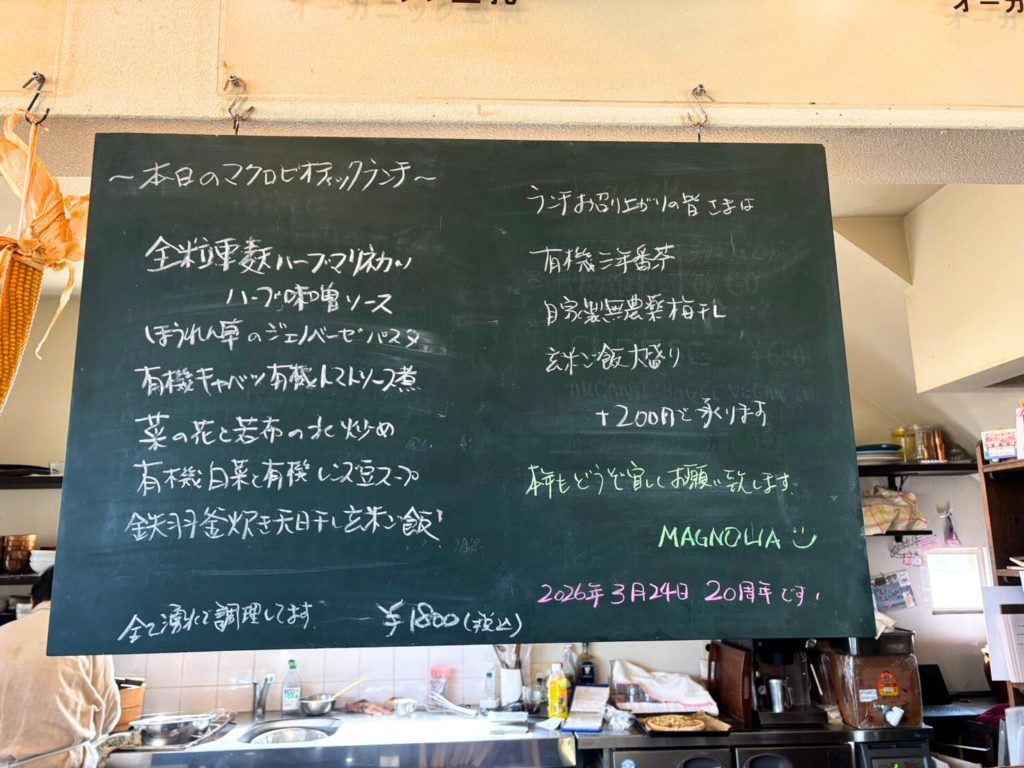 オーガニック
～本日のマクロビオティックランチ～
全粒車麩ハーブマリネカツ
ハーブ味噌ソース
ほうれん草のジェノベーゼパスタ
有機キャベツ有機トマトソース煮
菜の花と若布の水炒め
有機白菜と有機レンズ豆スープ
鉄羽釜炊き天日干し玄米ご飯
全て湧水で調理してます
¥1800(税込)
ランチお召し上がりの皆さまは
有機三年番茶
自家製無農薬梅干し
玄米ご飯大盛り
+200円で承ります
本年もどうぞ宜しくお願い致します。
MAGNOLIA
2026年3月24日 20周年です!